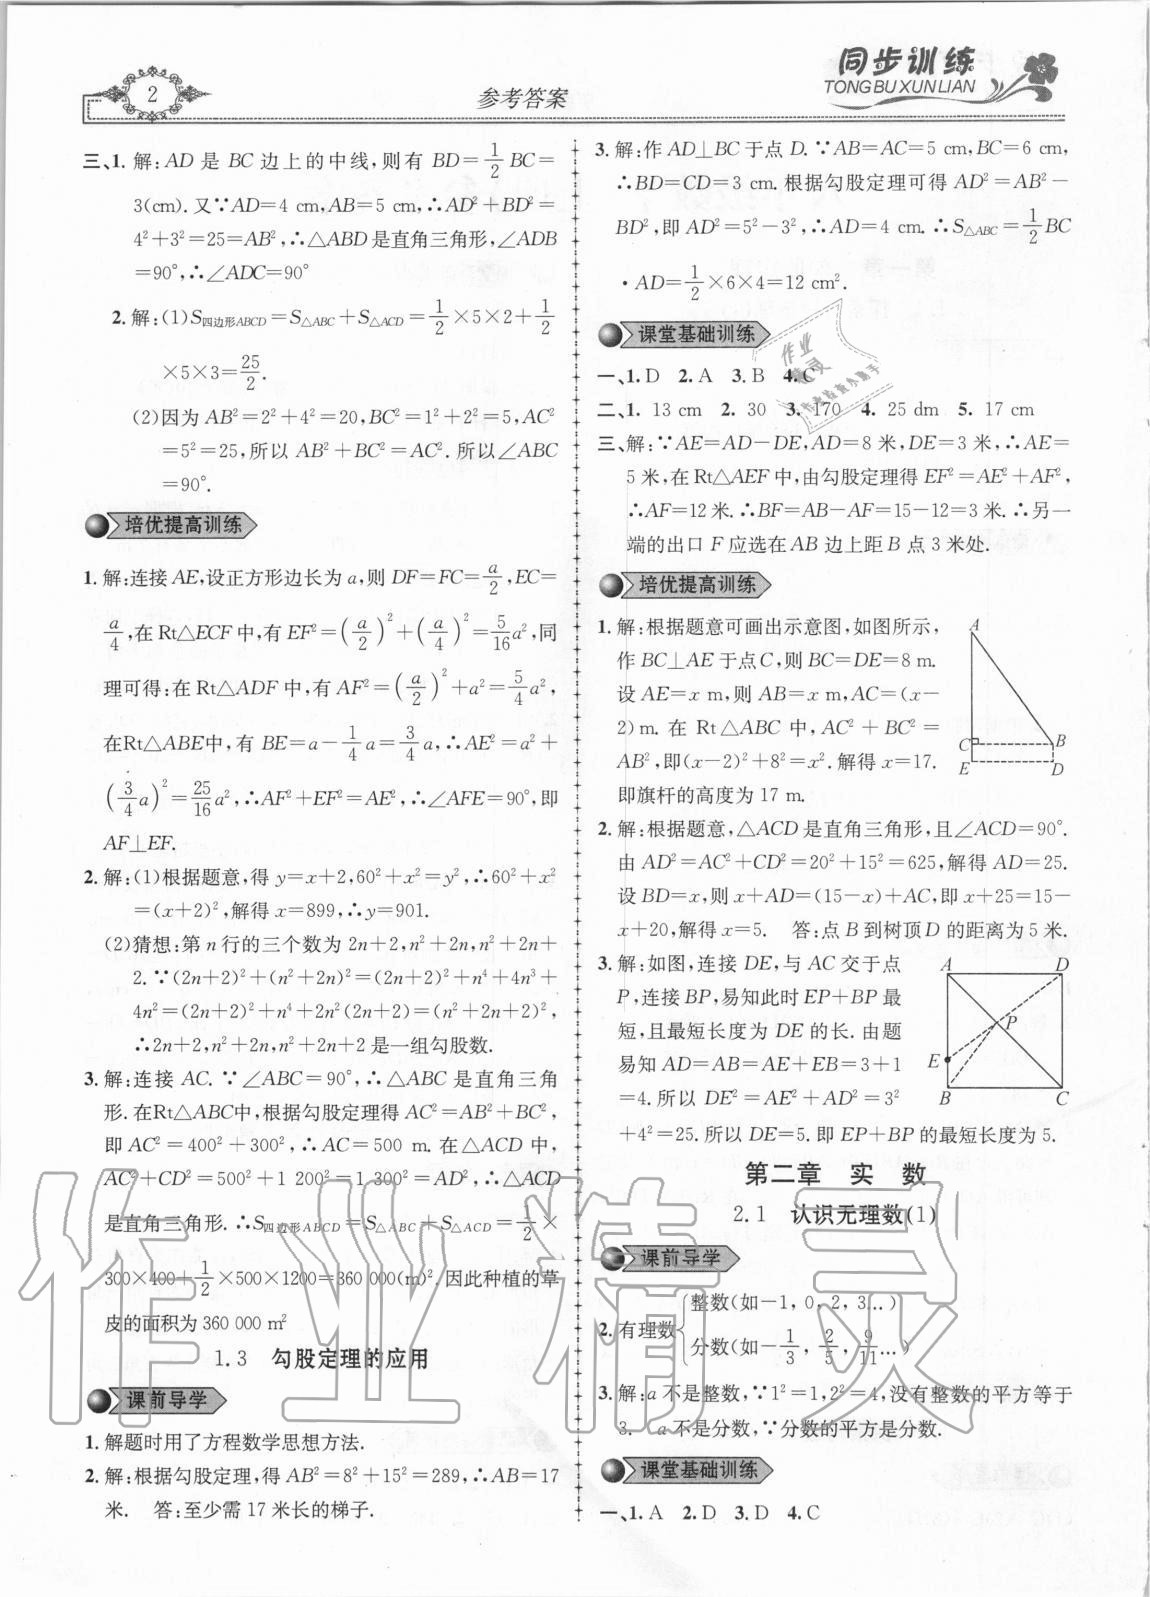 2
参考答案
同步训练
TONGBUXUNLIAN
三、1. 解:AD 是 BC 边上的中线,则有 BD=1/2 BC=
3(cm). 又∵AD=4 cm,AB=5 cm,∴AD²+BD²=
4²+3²=25=AB²,∴△ABD是直角三角形,∠ADB
=90°,∴∠ADC=90°
2. 解:(1)S四边形ABCD=S△ABC+S△ACD=1/2×5×2+1/2
×5×3=25/2.
(2)因为 AB²=2²+4²=20,BC²=1²+2²=5,AC²
=5²=25,所以 AB²+BC²=AC². 所以∠ABC
=90°.
培优提高训练
1. 解:连接AE,设正方形边长为a,则 DF=FC=a/2,EC=
a/4,在Rt△ECF中,有EF²=(a/2)²+(a/4)²=5/16a²,同
理可得:在Rt△ADF中,有AF²=(a/2)²+a²=5/4a²,
在Rt△ABE中,有 BE=a-1/4a=3/4a,∴AE²=a²+
(3/4a)²=25/16a²,∴AF²+EF²=AE²,∴∠AFE=90°,即
AF⊥EF.
2. 解:(1)根据题意,得 y=x+2,60²+x²=y²,∴60²+x²
=(x+2)²,解得 x=899,∴y=901.
(2)猜想:第 n 行的三个数为 2n+2,n²+2n,n²+2n+
2.∵(2n+2)²+(n²+2n)²=(2n+2)²+n⁴+4n³+
4n²=(2n+2)²+n⁴+2n²(2n+2)=(n²+2n+2)²,
∴2n+2,n²+2n,n²+2n+2是一组勾股数.
3. 解:连接 AC. ∵∠ABC=90°,∴△ABC 是直角三角
形.在Rt△ABC中,根据勾股定理得AC²=AB²+BC²,
即 AC²=400²+300²,∴AC=500 m. 在△ACD 中,
AC²+CD²=500²+1 200²=1 300²=AD²,∴△ACD
是直角三角形.∴S四边形ABCD=S△ABC+S△ACD=1/2×
300×400+1/2×500×1200=360 000(m)². 因此种植的草
皮的面积为 360 000 m²
1.3 勾股定理的应用
课前导学
1. 解题时用了方程数学思想方法.
2. 解:根据勾股定理,得 AB²=8²+15²=289,∴AB=17
米. 答:至少需 17 米长的梯子.
3. 解:作AD⊥BC于点D.∵AB=AC=5 cm,BC=6 cm,
∴BD=CD=3 cm. 根据勾股定理可得 AD²=AB²-
BD²,即 AD²=5²-3²,∴AD=4 cm.∴S△ABC=1/2BC
·AD=1/2×6×4=12 cm².
课堂基础训练
一、1. D 2. A 3. B 4. C
二、1. 13 cm 2. 30 3. 170 4. 25 dm 5. 17 cm
三、解:∵AE=AD-DE,AD=8 米,DE=3 米,∴AE=
5 米,在 Rt△AEF 中,由勾股定理得 EF²=AE²+AF²,
∴AF=12 米.∴BF=AB-AF=15-12=3 米.∴另
一端的出口 F 应选在 AB 边上距 B 点 3 米处.
培优提高训练
1. 解:根据题意可画出示意图,如图所示,
作BC⊥AE于点C,则BC=DE=8 m.
设 AE=x m,则 AB=x m,AC=(x-
2) m. 在 Rt△ABC 中,AC²+BC²=
AB²,即(x-2)²+8²=x². 解得 x=17.
即旗杆的高度为 17 m.
A
C
B
E
D
2. 解:根据题意,△ACD 是直角三角形,且∠ACD=90°.
由 AD²=AC²+CD²=20²+15²=625,解得 AD=25.
设BD=x,则 x+AD=(15-x)+AC,即 x+25=15-
x+20,解得 x=5. 答:点 B 到树顶 D 的距离为 5 米.
3. 解:如图,连接 DE,与 AC 交于点
P,连接BP,易知此时 EP+BP 最
短,且最短长度为 DE 的长. 由题
易知 AD=AB=AE+EB=3+1
=4. 所以 DE²=AE²+AD²=3²
+4²=25. 所以 DE=5. 即 EP+BP 的最短长度为 5.
A
D
P
E
B
C
第二章 实 数
2.1 认识无理数(1)
课前导学
2. 有理数{整数(如-1,0,2,3…)
分数(如-1/3,2/5,9/11…)
3. 解:a 不是整数,∵1²=1,2²=4,没有整数的平方等于
3. a 不是分数,∵分数的平方是分数.
课堂基础训练
一、1. A 2. D 3. D 4. C
作业精灵
作业精灵